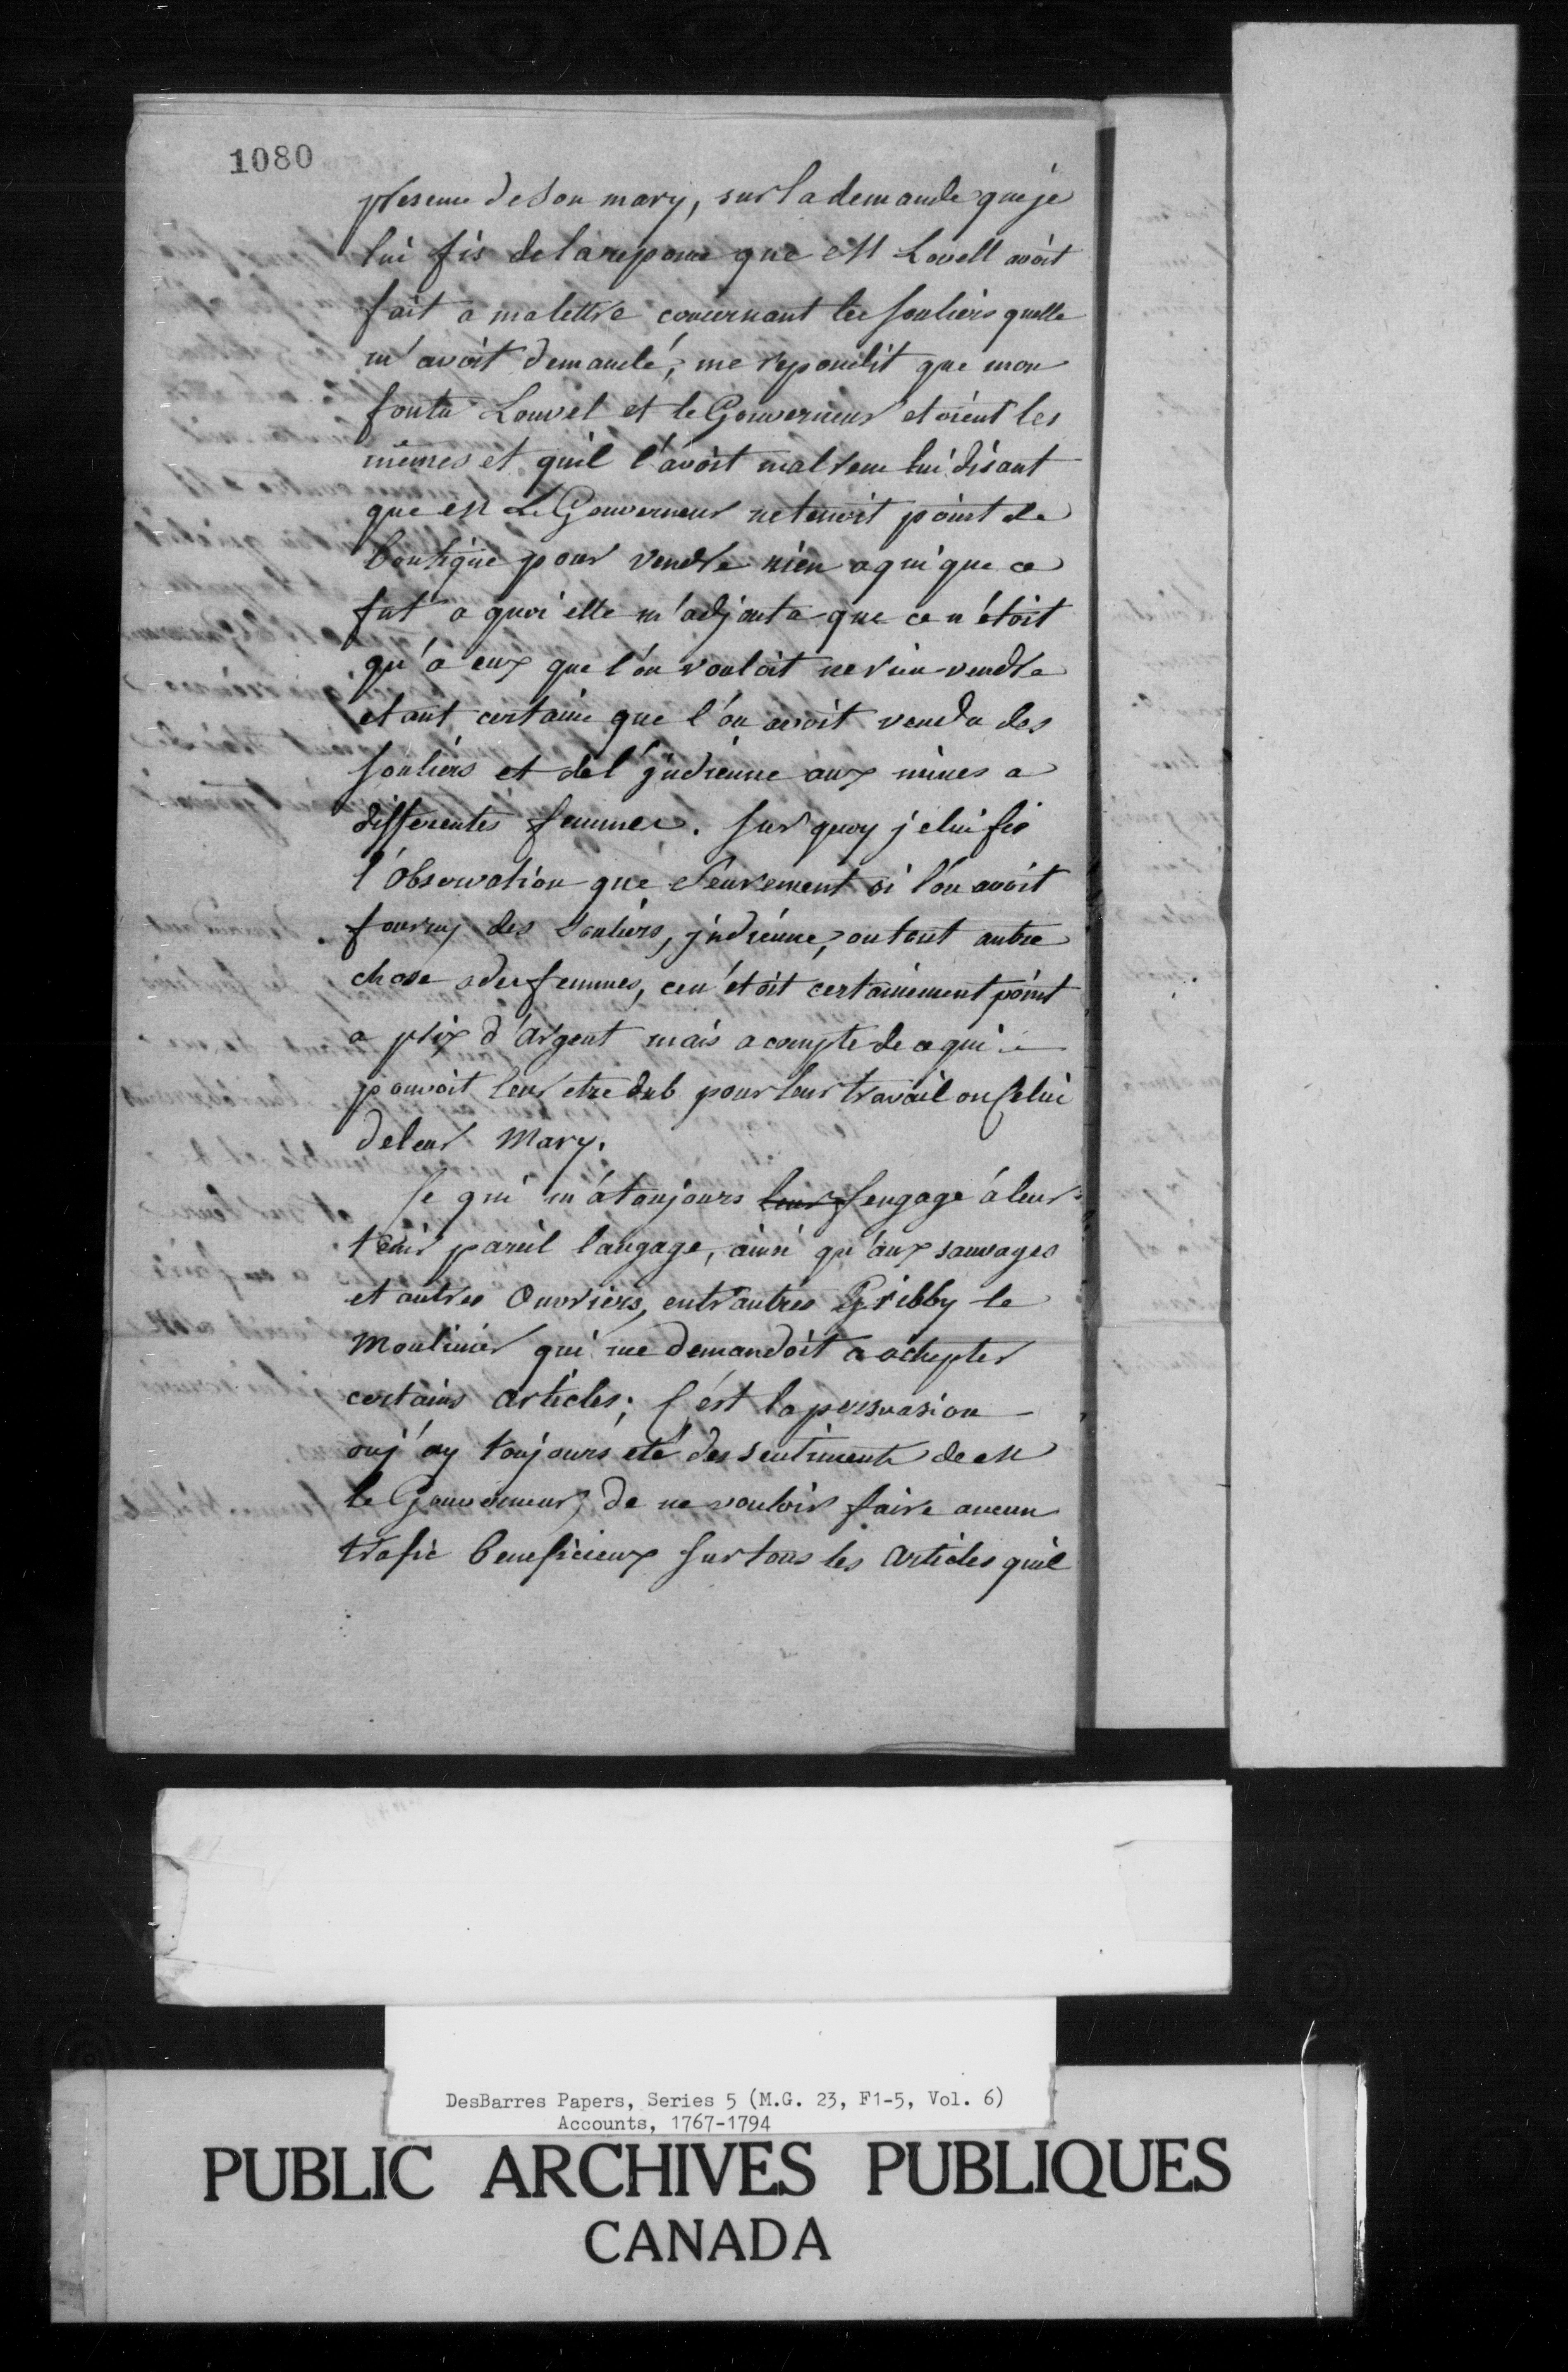 1080
presence de son mary, sur la demande que je
lui fis de la reponce que M Lovell avoit
fait a ma lettre concernant les souliers quelle
m'avoit demandé, me repondit que mon
foutu Louvel et le Gouverneur etoient les
mêmes et quil l'avoit mal reçu lui disant
que M Le Gouverneur ne tenoit point de
boutique pour vendre rien a qui que ce
fut a quoi elle m'adjouta que ce n'étoit
qu'a eux que l'on vouloit ne rien vendre
etant certaine que l'on avoit vendu des
souliers et del' jndienne aux mines a
differentes femmes. Sur quoy je lui fis
l'observation que Seurement si l'on avoit
fourny des souliers, jndienne, ou tout autre
chose a des femmes, ce n'etoit certainement point
a prix d'argent mais a compte de ce qui
pouvoit leur etre dub pour leur travail ou Celui
de leur Mary.
Ce qui m'a toujours leur engage á leur
tenir pareil langage, ainsi qu'aux sauvages
et autres Ouvriers, entr'autres Gribby le
Moulinier qui me demandoit a achepter
certains articles; C'ést la persuasion
ou j'ay toujours eté des sentiments de M
le Gouverneur, de ne vouloir faire aucun
trafic beneficieux sur tous les articles quil
DesBarres Papers, Series 5 (M.G. 23, F1-5, Vol. 6)
Accounts, 1767-1794
PUBLIC ARCHIVES PUBLIQUES
CANADA